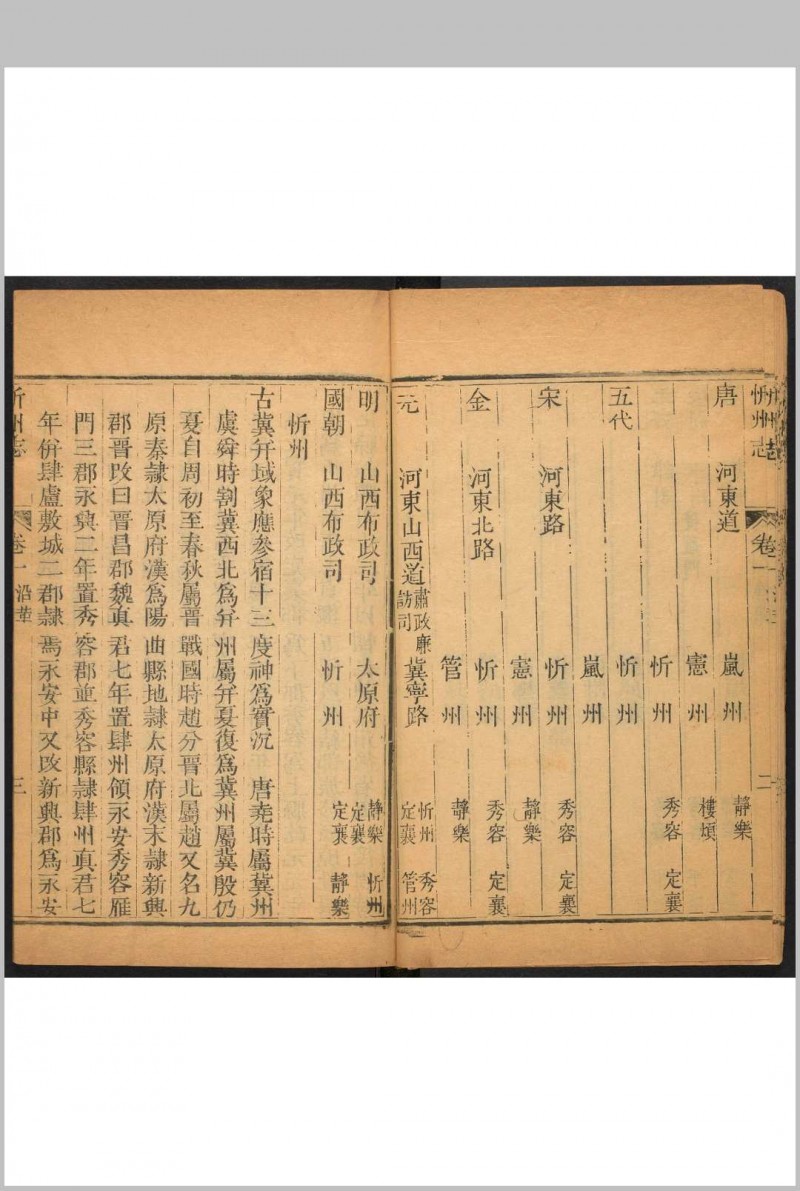 忻州志 卷一 二
唐 河東道 嵐州 靜樂
憲州 樓煩
忻州 秀容 定襄
五代 忻州
嵐州
宋 河東路 忻州 秀容 定襄
憲州 靜樂
金 河東北路 忻州 秀容 定襄
管州 靜樂
元 河東山西道肅政廉訪司 冀寧路 忻州 秀容 定襄 管州
明 山西布政司 太原府 靜樂 忻州 定襄
國朝 山西布政司 忻州 定襄 靜樂
忻州
古冀幷域象應參宿十三度神爲實沉 唐堯時屬冀州
虞舜時割冀西北爲幷州屬幷夏復爲冀州屬冀殷仍
夏自周初至春秋屬晉戰國時趙分晉北屬趙又名九
原秦隸太原府漢爲陽曲縣地隸太原府漢末隸新興
郡晉改曰晉昌郡魏眞君七年置肆州領永安秀容雁
門三郡永興二年置秀容郡並秀容縣隸肆州眞君七
年併肆盧敷城二郡隸焉永安中又改新興郡爲永安
忻州志 卷一 沿革 三